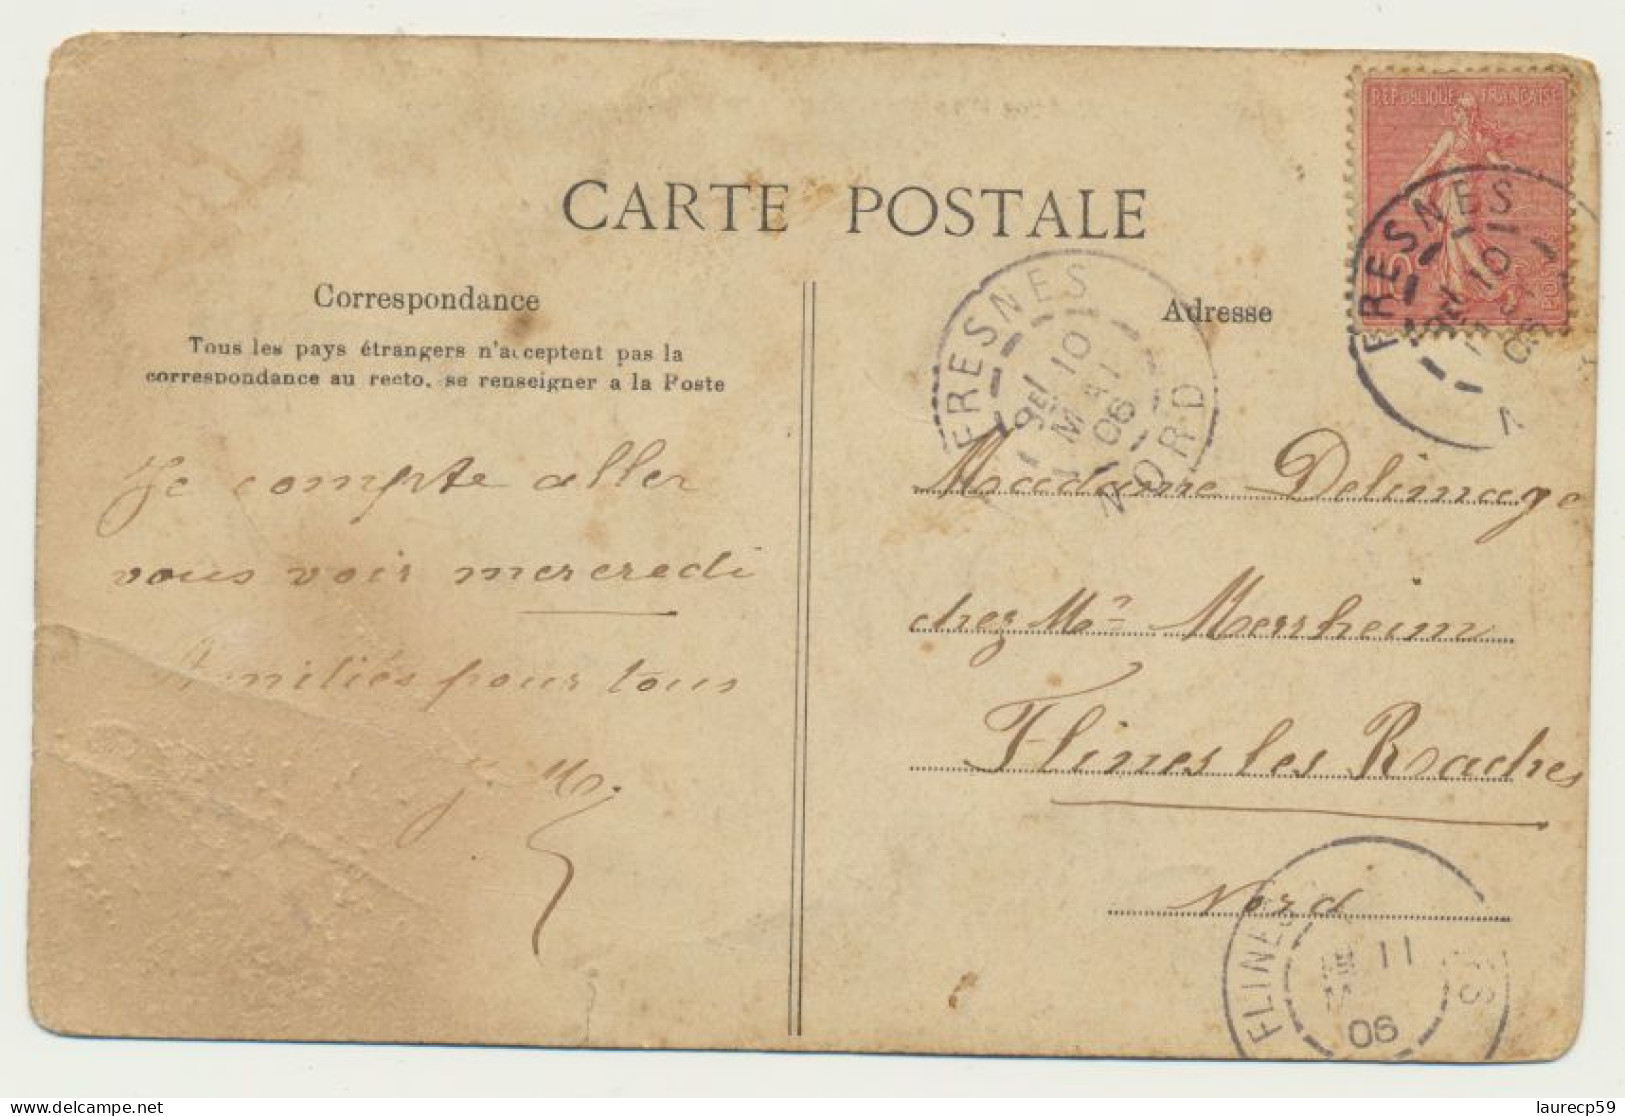 CARTE POSTALE
Correspondance
Tous les pays étrangers n'acceptent pas la
correspondance au recto, se renseigner a la Poste
Je compte aller
vous voir mercredi
Amitiés pour tous
J. M.
RÉPUBLIQUE FRANÇAISE
10
POSTES
FRESNES
10
06
N
FRESNES
10
MAI
06
NORD
Adresse
Madame Delimage
chez Mr Mersheim
Flines les Raches
Nord
FLINES
11
M
06
delcampe.net
laurecp59